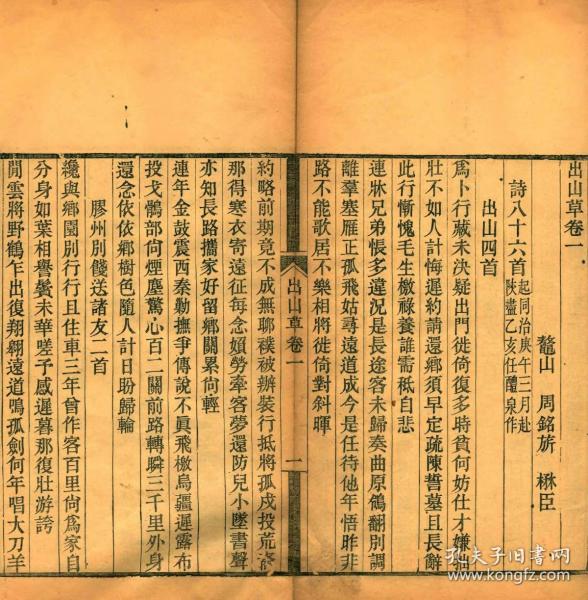 出山草卷一
鼇山　周銘旂　楙臣
詩八十六首起同治庚午三月赴
陜盡乙亥任醴泉作
出山四首
爲卜行藏未決疑出門徙倚復多時貧何妨仕才嫌拙
壯不如人計悔遲約請還鄉須早定疏陳誓墓且長辭
此行慚愧毛生檄祿養誰需秪自悲
連牀兄弟悵多違況是長途客未歸奏曲原鴒翻別調
離羣塞雁正孤飛姑尋遠道成今是任待他年悟昨非
路不能歌居不樂相將徙倚對斜暉
出山草卷一
一
約略前期竟不成無聊襆被辦裝行抵將孤戍投荒
那得寒衣寄遠征每念嬾勞牽客夢還防兒小墜書聲
亦知長路攜家好留鄉關累尙輕
連年金鼓震西秦勦撫爭傳說不眞飛檄烏疆遲露布
投戈鶻部尙煙塵驚心百二關前路轉瞬三千里外身
還念依依鄉樹色隨人計日盼歸輪
膠州別餞送諸友二首
纔與鄉園別行行且住車三年曾作客百里尙爲家自
分身如葉相譽鬢未華嗟予感遲暮那復壯游誇
閒雲將野鶴乍出復翔翶遠道鳴孤劍何年唱大刀羊
孔夫子旧书网